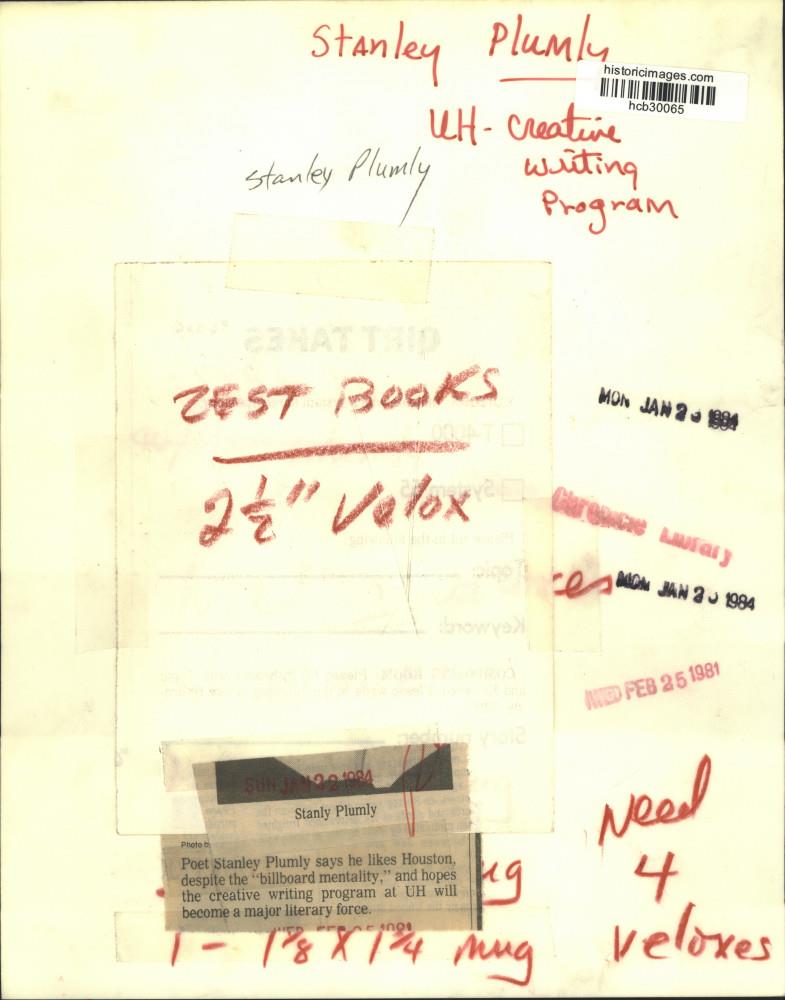 Stanley Plumly
historicimages.com
hcb30065
UH - Creative
Writing
Program
Stanley Plumly
GIRT TAKES
ZEST BOOKS
2 1/2" Velox
MON JAN 23 1984
Chronicle Library
MON JAN 23 1984
WED FEB 25 1981
System 55
Topic:
Keyword:
Story number:
SUN JAN 22 1984
Stanly Plumly
Photo b
Poet Stanley Plumly says he likes Houston,
despite the "billboard mentality," and hopes
the creative writing program at UH will
become a major literary force.
ug
1 - 1 7/8 X 1 3/4 mug
Need
4
veloxes